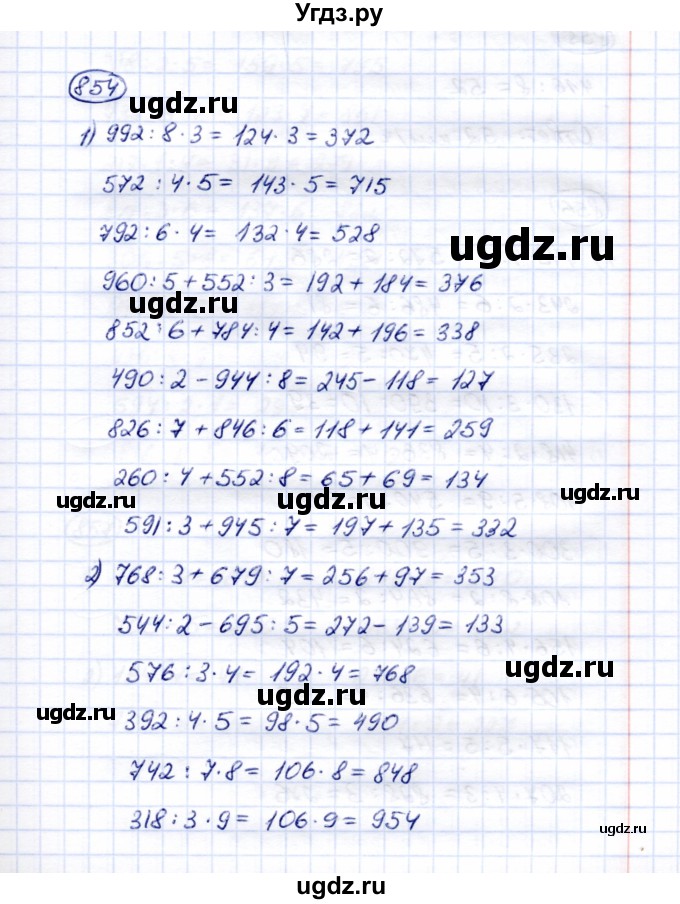 Угдз.ру
854
ugdz.ru
1) 992 : 8 · 3 = 124 · 3 = 372
572 : 4 · 5 = 143 · 5 = 715
792 : 6 · 4 = 132 · 4 = 528
ugdz.ru
960 : 5 + 552 : 3 = 192 + 184 = 376
ugdz.ru
852 : 6 + 784 : 4 = 142 + 196 = 338
490 : 2 - 944 : 8 = 245 - 118 = 127
826 : 7 + 846 : 6 = 118 + 141 = 259
260 : 4 + 552 : 8 = 65 + 69 = 134
ugdz.ru
ugdz.ru
591 : 3 + 945 : 7 = 197 + 135 = 332
2) 768 : 3 + 679 : 7 = 256 + 97 = 353
544 : 2 - 695 : 5 = 272 - 139 = 133
576 : 3 · 4 = 192 · 4 = 768
ugdz.ru
ugdz.ru
ugdz.ru
392 : 4 · 5 = 98 · 5 = 490
742 : 7 · 8 = 106 · 8 = 848
318 : 3 · 9 = 106 · 9 = 954
ugdz.ru
ugdz.ru